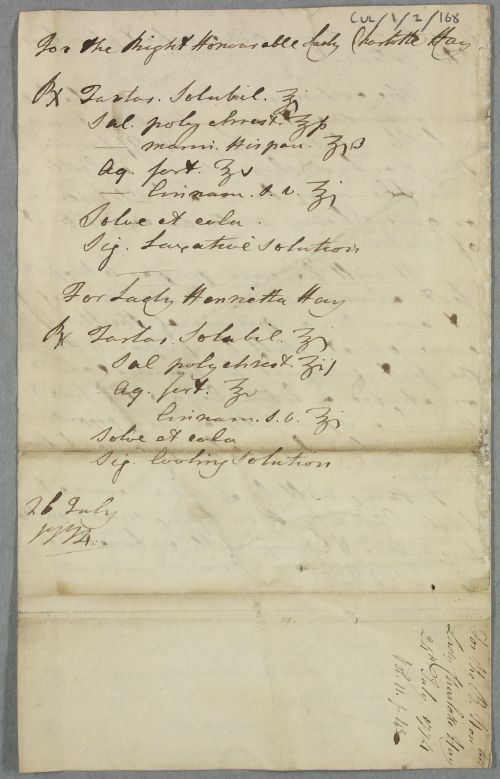 CUL/1/2/168
For the Right Honourable Lady Charlotte Hay
℞ Tartar. Solubil. ʒj
Sal. polychrest. ʒß
— mami. Hispan. ʒiß
Aq. font. ℥v
— Cinnam. s. v. ℥j
Solve et cola.
Sig. Laxative Solution
For Lady Henrietta Hay
℞ Tartar. Solubil. ʒj
Sal polychrest. ʒij
Aq. font. ℥v
Cinnam. s. v. ℥j
Solve et cola
Sig. Cooling Solution
26 July
1774.
For the R. Hon.
Lady Charlotte Hay
July 1774
Vol. 11. p.